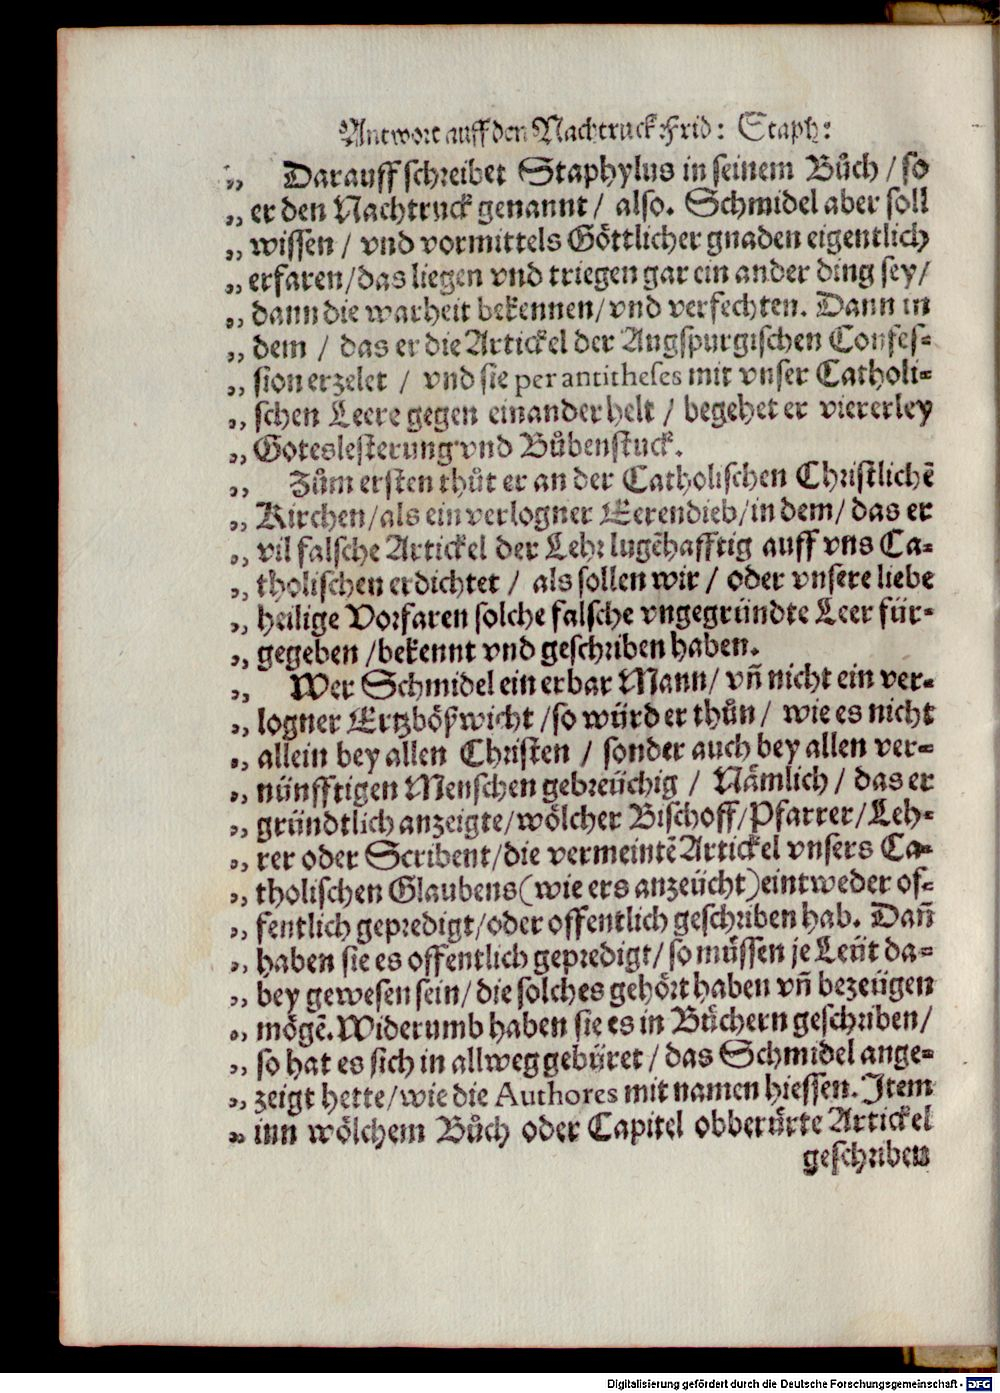 Antwort auff den Nachtruck Frid: Staph:
„ Darauff schreibet Staphylus in seinem Bůch / so
„ er den Nachtruck genannt / also. Schmidel aber soll
„ wissen / vnd vormittels Göttlicher gnaden eigentlich
„ erfaren/das liegen vnd triegen gar ein ander ding sey/
„ dann die warheit bekennen/vnd verfechten. Dann in
„ dem / das er die Artickel der Augspurgischen Confes-
„ sion erzelet / vnd sie per antitheses mit vnser Catholi-
„ schen Leere gegen einander helt / begehet er viererley
„ Goteslesterung vnd Bůbenstuck.
„ Zům ersten thůt er an der Catholischen Christlichē
„ Kirchen/als ein verlogner Eerendieb/in dem/ das er
„ vil falsche Artickel der Lehr lugēhafftig auff vns Ca-
„ tholischen erdichtet / als sollen wir / oder vnsere liebe
„ heilige Vorfaren solche falsche vngegründte Leer für-
„ gegeben /bekennt vnd geschriben haben.
„ Wer Schmidel ein erbar Mann/ vn̄ nicht ein ver-
„ logner Ertzbößwicht /so würd er thůn / wie es nicht
„ allein bey allen Christen / sonder auch bey allen ver-
„ nünfftigen Menschen gebreüchig / Nämlich / das er
„ gründtlich anzeigte/wölcher Bischoff/Pfarrer/Leh-
„ rer oder Scribent/die vermeintē Artickel vnsers Ca-
„ tholischen Glaubens(wie ers anzeücht)eintweder of-
„ fentlich gepredigt/oder offentlich geschriben hab. Dan̄
„ haben sie es offentlich gepredigt/ so müssen je Leüt da-
„ bey gewesen sein/ die solches gehört haben vn̄ bezeügen
„ mögē. Widerumb haben sie es in Büchern geschriben/
„ so hat es sich in allweg gebüret / das Schmidel ange-
„ zeigt hette/wie die Authores mit namen hiessen. Item
„ inn wölchem Bůch oder Capitel obberürte Artickel
geschriben
Digitalisierung gefördert durch die Deutsche Forschungsgemeinschaft - DFG